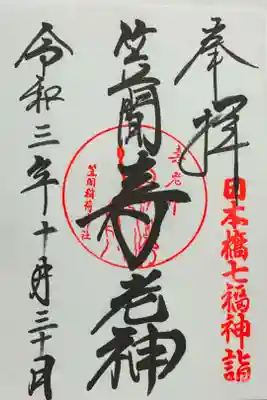 奉拝
日本橋七福神詣
笠間寿老神
寿老
笠間稲荷神社
令和三年十月三十日